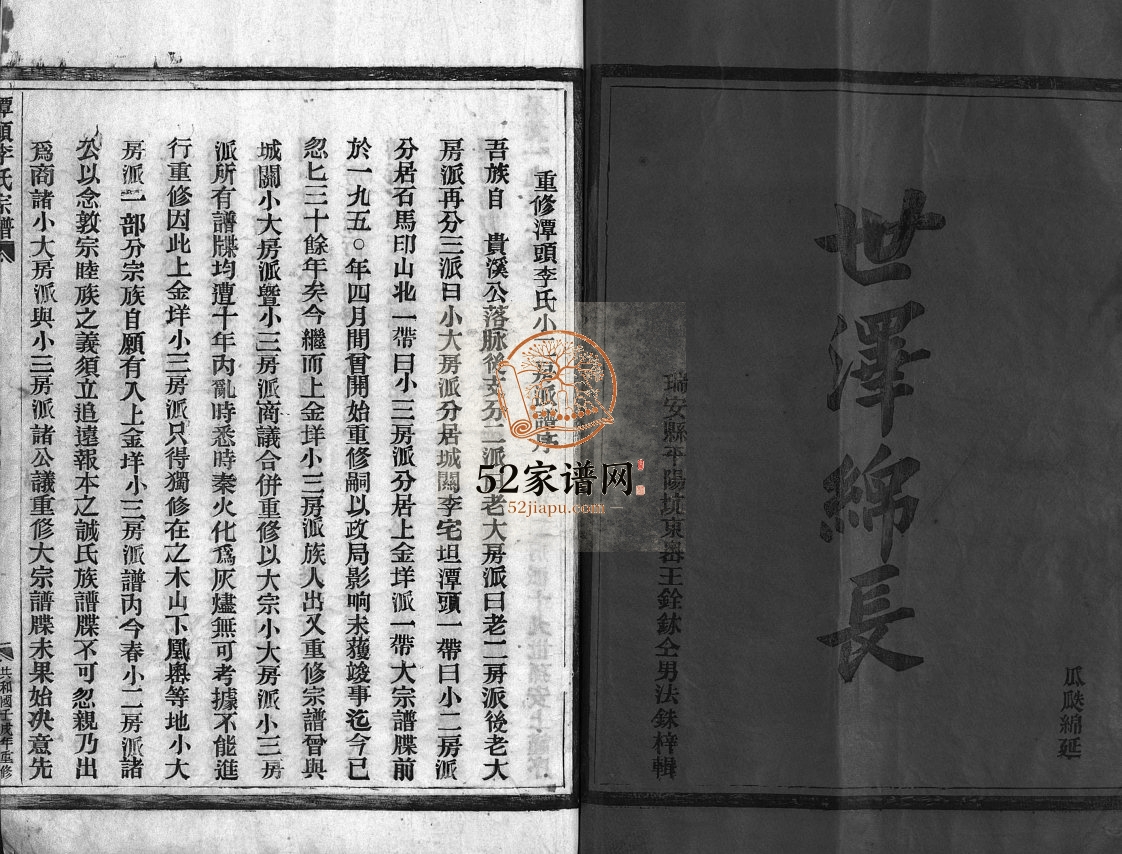 瓜瓞綿延
世澤綿長
瑞安縣平陽坑東嶴王銓鉥仝男法銇梓輯
重修潭頭李氏小二房派譜序
吾族自 貴溪公落脈後支分二派曰老大房派曰老二房派後老大
房派再分三派曰小大房派分居城關李宅坦潭頭一帶曰小二房派
分居石馬印山北一帶曰小三房派分居上金垟派一帶大宗譜牒前
於一九五〇年四月間曾開始重修嗣以政局影响未獲竣事迄今已
忽匕三十餘年矣今繼而上金垟小三房派族人出又重修宗譜曾與
城關小大房派暨小三房派商議合併重修以大宗小大房派小三房
派所有譜牒均遭十年內亂時悉時秦火化爲灰燼無可考據不能進
行重修因此上金垟小三房派只得獨修在之木山下凰嶴等地小大
房派一部分宗族自願有入上金垟小三房派譜內今春小二房派諸
公以念敦宗睦族之義須立追遠報本之誠氏族譜牒不可忽親乃出
爲商諸小大房派與小三房派諸公議重修大宗譜牒未果始决意先
潭頭李氏宗譜
共和國壬戌年重修
52家谱网
52jiapu.com